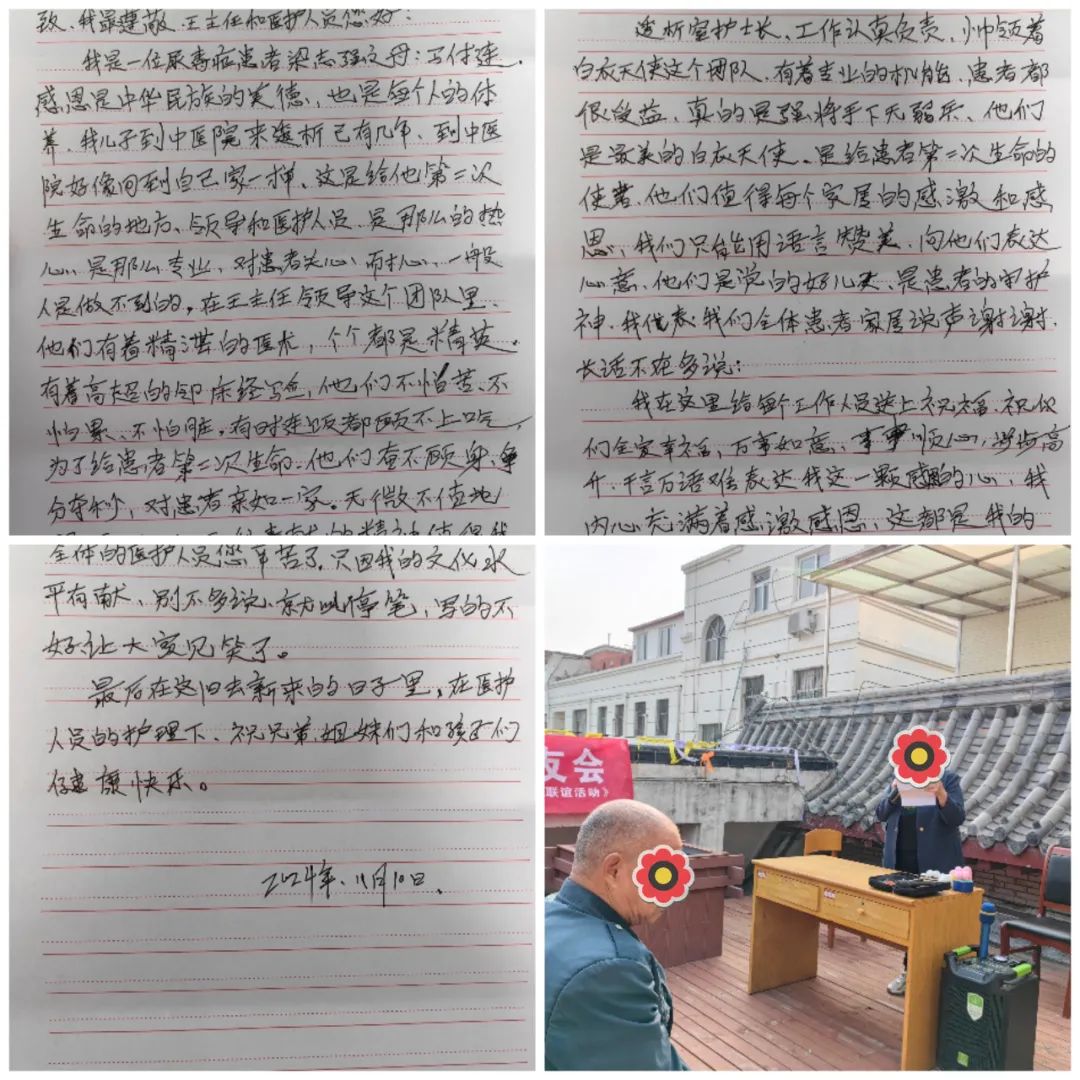 致、我最尊敬、王主任和医护人员您好:
我是一位尿毒症患者梁志强父母:
感恩是中华民族的美德、也是每个人的体
养、我儿子到中医院来透析己有几年、到中医
院好像回到自己家一样、这是给他第二次
生命的地方、领导和医护人员、是那么的热
心、是那么专业、对患者关心、而扎心、一般
人是做不到的、在王主任领导这个团队里、
他们有着精湛的医术，个个都是精英、
有着高超的临床经验，他们不怕苦、不
怕累、不怕脏、有时连饭都顾不上吃、
为了给患者第二次生命、他们奋不顾身、争
分夺秒，对患者亲如一家、无微不至地
透析室护士长、工作认真负责、帅领着
白衣天使这个团队、有着专业的机能、患者都
很受益、真的是强将手下无弱兵、他们
是最美的白衣天使、是给患者第二次生命的
使者、他们值得每个家属的感激和感
恩、我们只能用语言赞美、向他们表达
心意、他们是党的好儿女、是患者的守护
神、我代表我们全体患者家属说声谢谢、
长话不在多说:
我在这里给每个工作人员送上祝福、祝你
们全家幸福、万事如意、事事顺心、步步高
升、千言万语难表达我这一颗感恩的心、我
内心充满着感激感恩、这都是我的
全体的医护人员您辛苦了、只因我的文化水
平有限、别不多说、就此停笔，写的不
好让大家见笑了。
最后在这旧去新来的日子里，在医护
人员的护理下、祝兄弟姐妹们和孩子们
健康快乐。
2024年、11月10日、
友会
联谊活动》